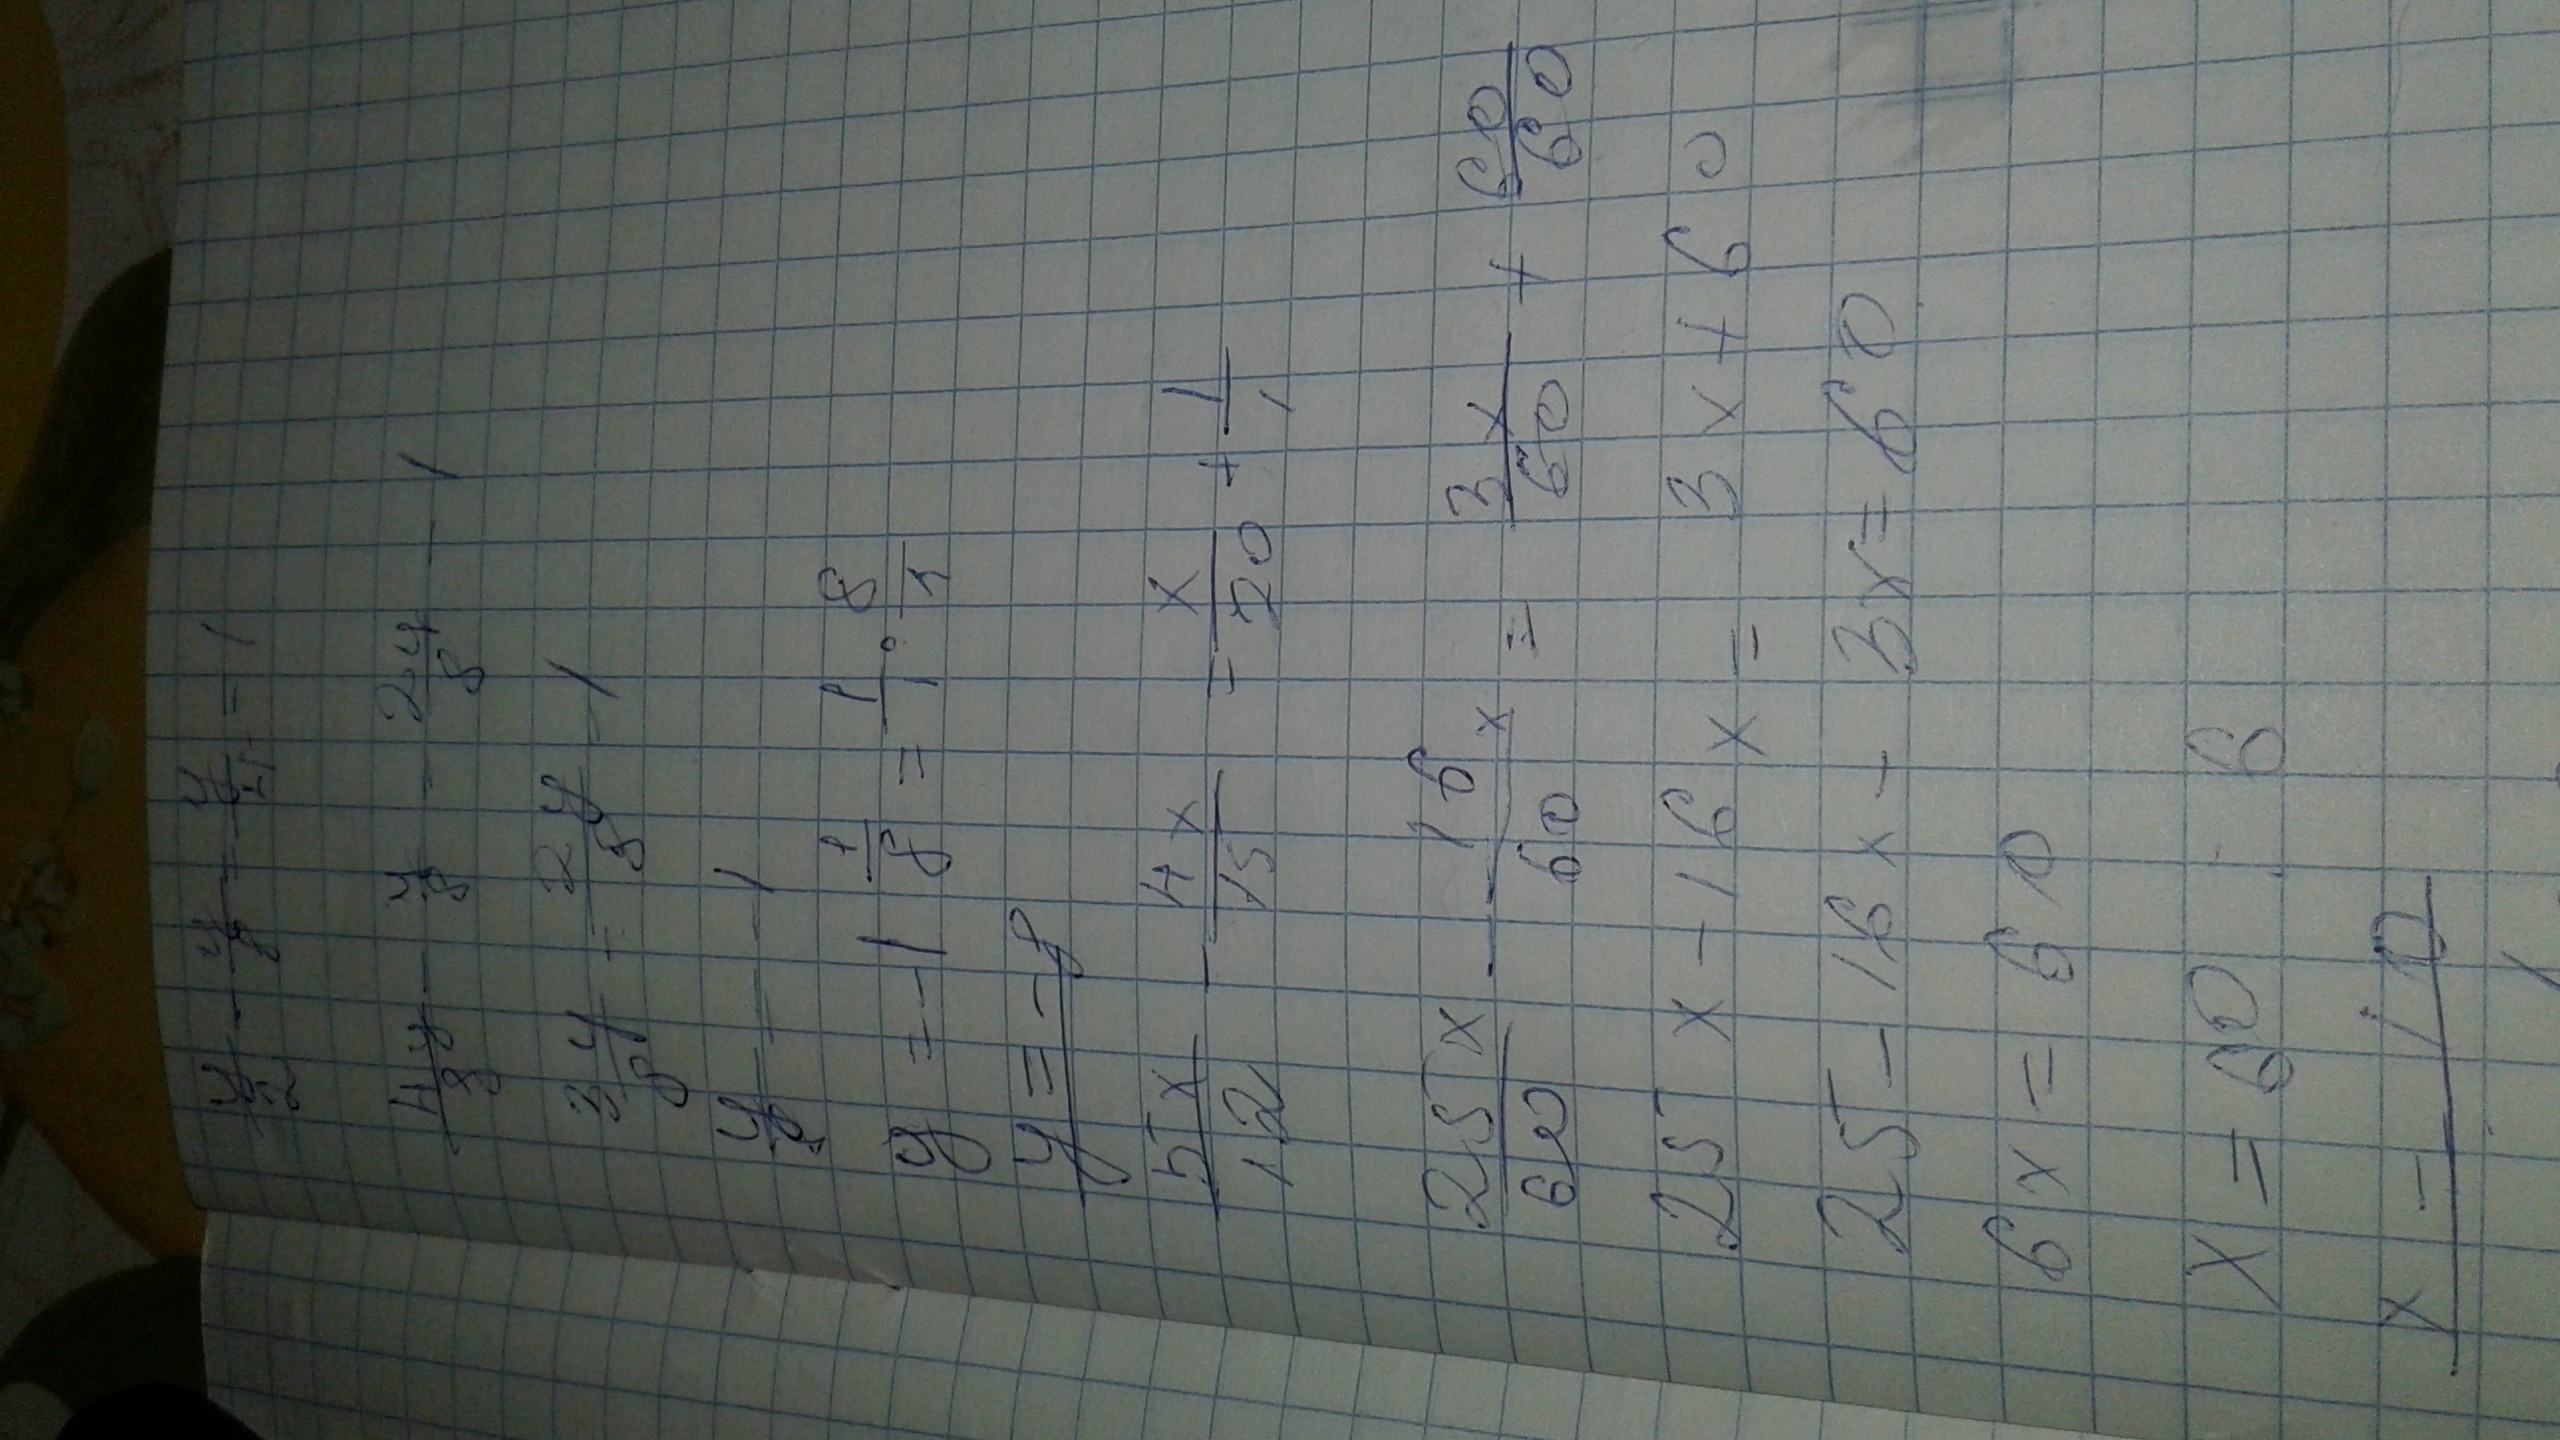 y/2 - y/8 = y/4 - 1
4y/8 - y/8 = 2y/8 - 1
3y/8 = 2y/8 - 1
y/8 = -1
y = -1 1/8 = 1/1 · 8/1
y = -8
5x/12 - 4x/15 = x/20 + 1/1
25x/60 - 16x/60 = 3x/60 + 60/60
25x - 16x = 3x + 60
25 - 16x - 3x = 60
6x = 60
x = 60 : 6
x = 10